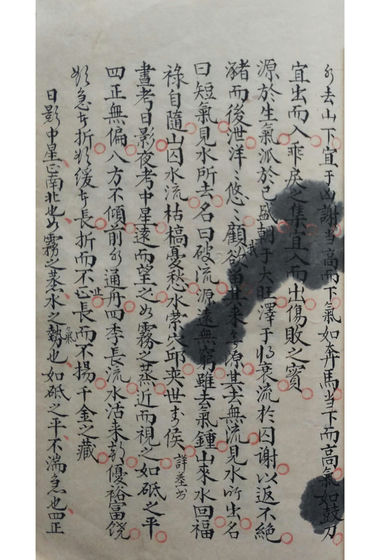 去山下宜于凶謝當高而下氣如奔馬當下而高氣如鼓刀
宜出而入乘戾之集宜入而出傷敗之賓
源於生氣派於已盛朝于大旺澤于將衰流於囚謝以返不絕
瀦而後泄洋〻悠〻顧我欲留其來無源其去無流見水所出名
曰短氣見水所去名曰破流源遠無窮雖去氣鍾山來水回福
祿自隨山囚水流枯槁憂愁水縈穴卭奕世封侯 詳葢書
晝考日影夜考中星遠而望之如霧之蒸近而視之如砥之平
四正無偏八方不傾前通舟四季長流水活來龍優裕富饒
急去折緩去長折而不亡長而不揚千金之藏
世 氣
日影中星正南北也如霧之蒸水之勢也如砥之平不湍急也四正